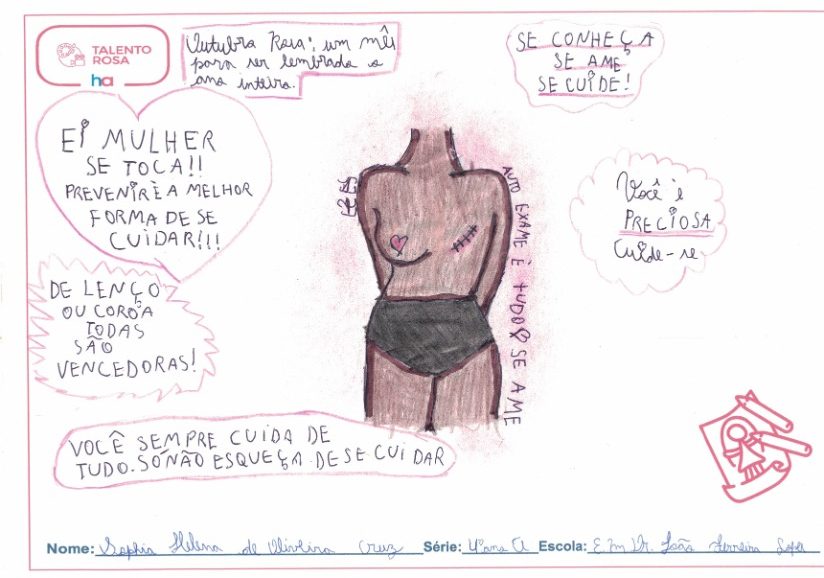 TALENTO
ROSA
ha
Outubro Rosa: um mês
para ser lembrado o
ano inteiro.
SE CONHEÇA
SE AME
SE CUIDE!
EI MULHER
SE TOCA!!
PREVENIR È A MELHOR
FORMA DE SE
CUIDAR!!!
Você é
PRECIOSA
Cuide-se
AUTO EXAME È TUDO SE AME
DE LENÇO
OU COROA
TODAS
SÃO
VENCEDORAS!
VOCÊ SEMPRE CUIDA DE
TUDO. SÓ NÃO ESQUEÇA DE SE CUIDAR
Nome: Sophia Helena de Oliveira Cruz Série: 4º ano A Escola: E M Dr. João Ferreira